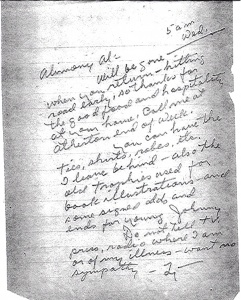 5 a.m.
Wed.
Al:-
Will be gone
when you return - hitting
road early, so thanks for
the good food and hospitality
at your house! Call me at
Atherton end of week.
You can have the
ties, shirts, robes, etc.
I leave behind - also the
old trophies used for
book illustrations - and
some signed odds and
ends for young Johnny
Do not tell tv,
press, radio where I am
or of my illness - want no
sympathy -